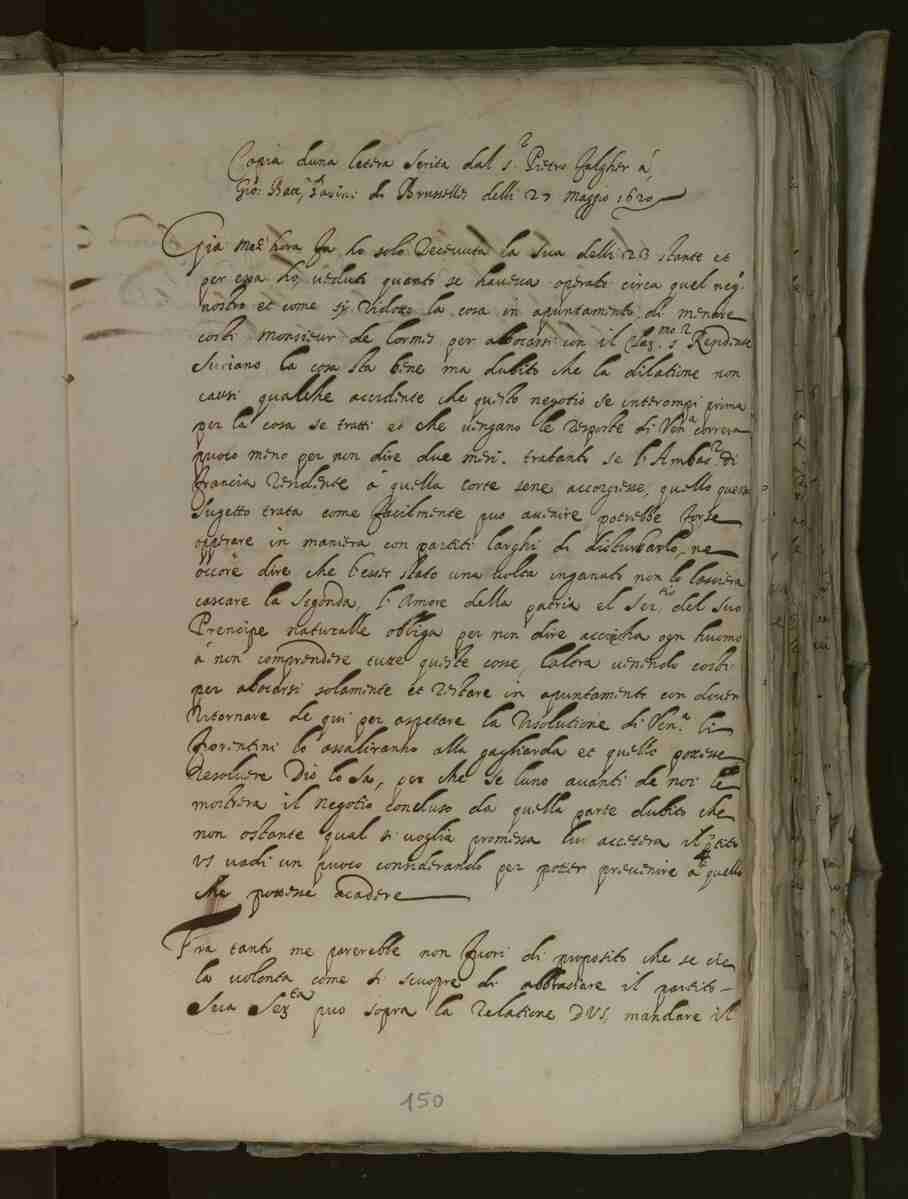 Copia duna letera scrita dal s.r Pietro falgher á
Gio: Batt.a de Brusselles delli 27 Maggio 1620
Gia mez hora fa ho solo Receuuta la sua delli 23 stante et
per essa ho ueduto quanto se haueua operato circa quel neg.o
nostro et come si ridotto la cosa in apuntamento di menare
costi monsieur de lormes per abocarsi con il s.r Residente
Suriano la cosa sta bene ma dubito che la dilatione non
causi qualche accidente che questo negotio se interompi prima
per la cosa se tratti et che uengano le risposte di Ven.a correra
puoco meno per non dire due mesi. tratanto se l'Ambas.r di
francia Residente á quella corte sene accorgesse, quello questo
sugetto trata come facilmente puo auenire potrebbe forse
operare in maniera con partiti larghi di disturbarlo, ne
occore dire che l'esser stato una uolta inganato non lo lasciera
cascare la segonda, l'Amore della patria el ser.tio del suo
Prencipe naturalle obliga per non dire ogn huomo
á non comprendere tutte queste cosse, talora uenendo costi
per abocarsi solamente et restare in apuntamento con douer
ritornare de qui per aspetare la resolutione di Ven.a li
fiorentini lo assaliranno alla gagliarda et quello potesse
resoluere Dio lo sa, per che se luno auanti de noi le
mostrera il negotio concluso da quella parte dubito che
non ostante qual si uoglia promessa lui accetera il
VS uadi un puoco considerando per poter preuenire á quello
che potesse acadere
Fra tanto me parerebbe non fuori di proposito che se cie
la uolonta come si scuopre di abbraciare il partito
Sua Ser.ta puo sopra la relatione DVS, mandare il
150